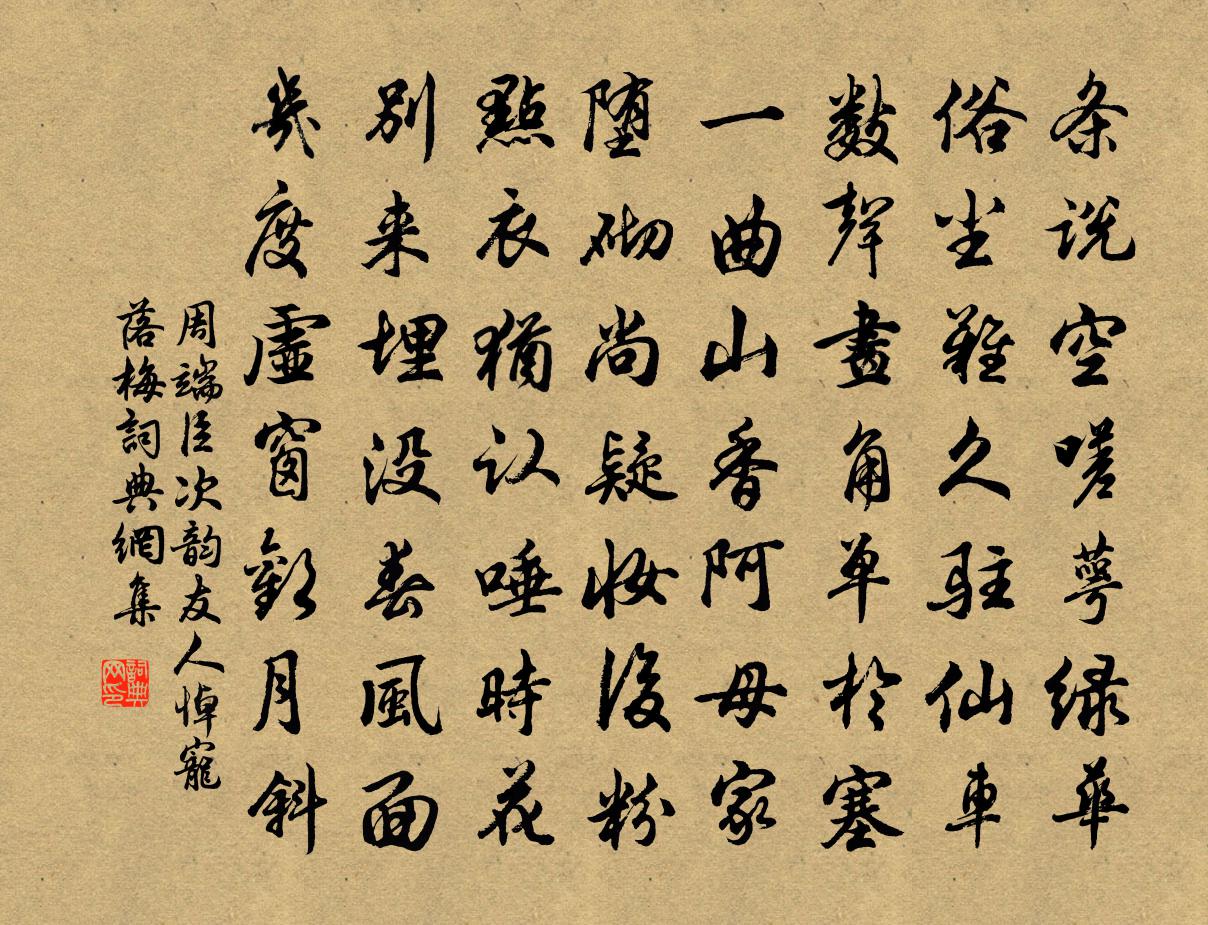 条说空嗟萼绿华
俗尘难久驻仙车
数声画角单于塞
一曲山香阿母家
堕砌尚疑妆后粉
點衣犹认唾時花
别来埋没春風面
幾度虚窗对月斜
周端臣次韵友人悼寵
落梅詞典網集
詞典网印